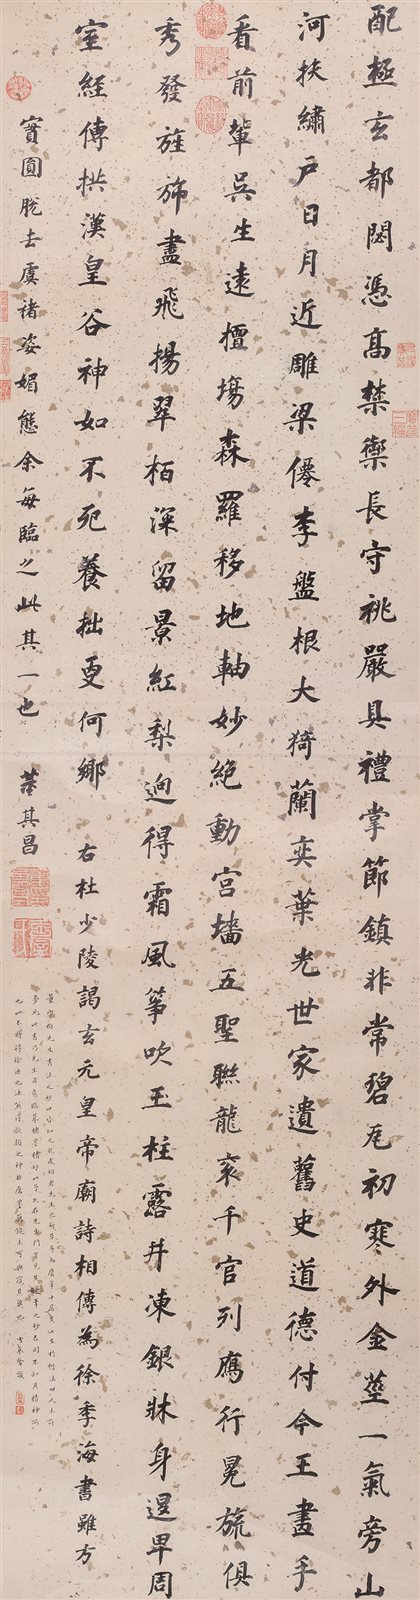 配極玄都閟憑高禁禦長守祧嚴具禮掌節鎮非常碧瓦初寒外金莖一氣旁山
河扶繡戶日月近雕梁僊李盤根大猗蘭奕葉光世家遺舊史道德付今王畫手
看前輩吳生遠擅場森羅移地軸妙絕動宮墻五聖聯龍袞千官列鴈行冕旒俱
秀發旌旆盡飛揚翠柏深留景紅梨迥得霜風箏吹玉柱露井凍銀牀身退卑周
室經傳拱漢皇谷神如不死養拙更何鄉 右杜少陵謁玄元皇帝廟詩相傳為徐季海書雖方
實圓脫去虞褚姿媚態余每臨之此其一也 董其昌